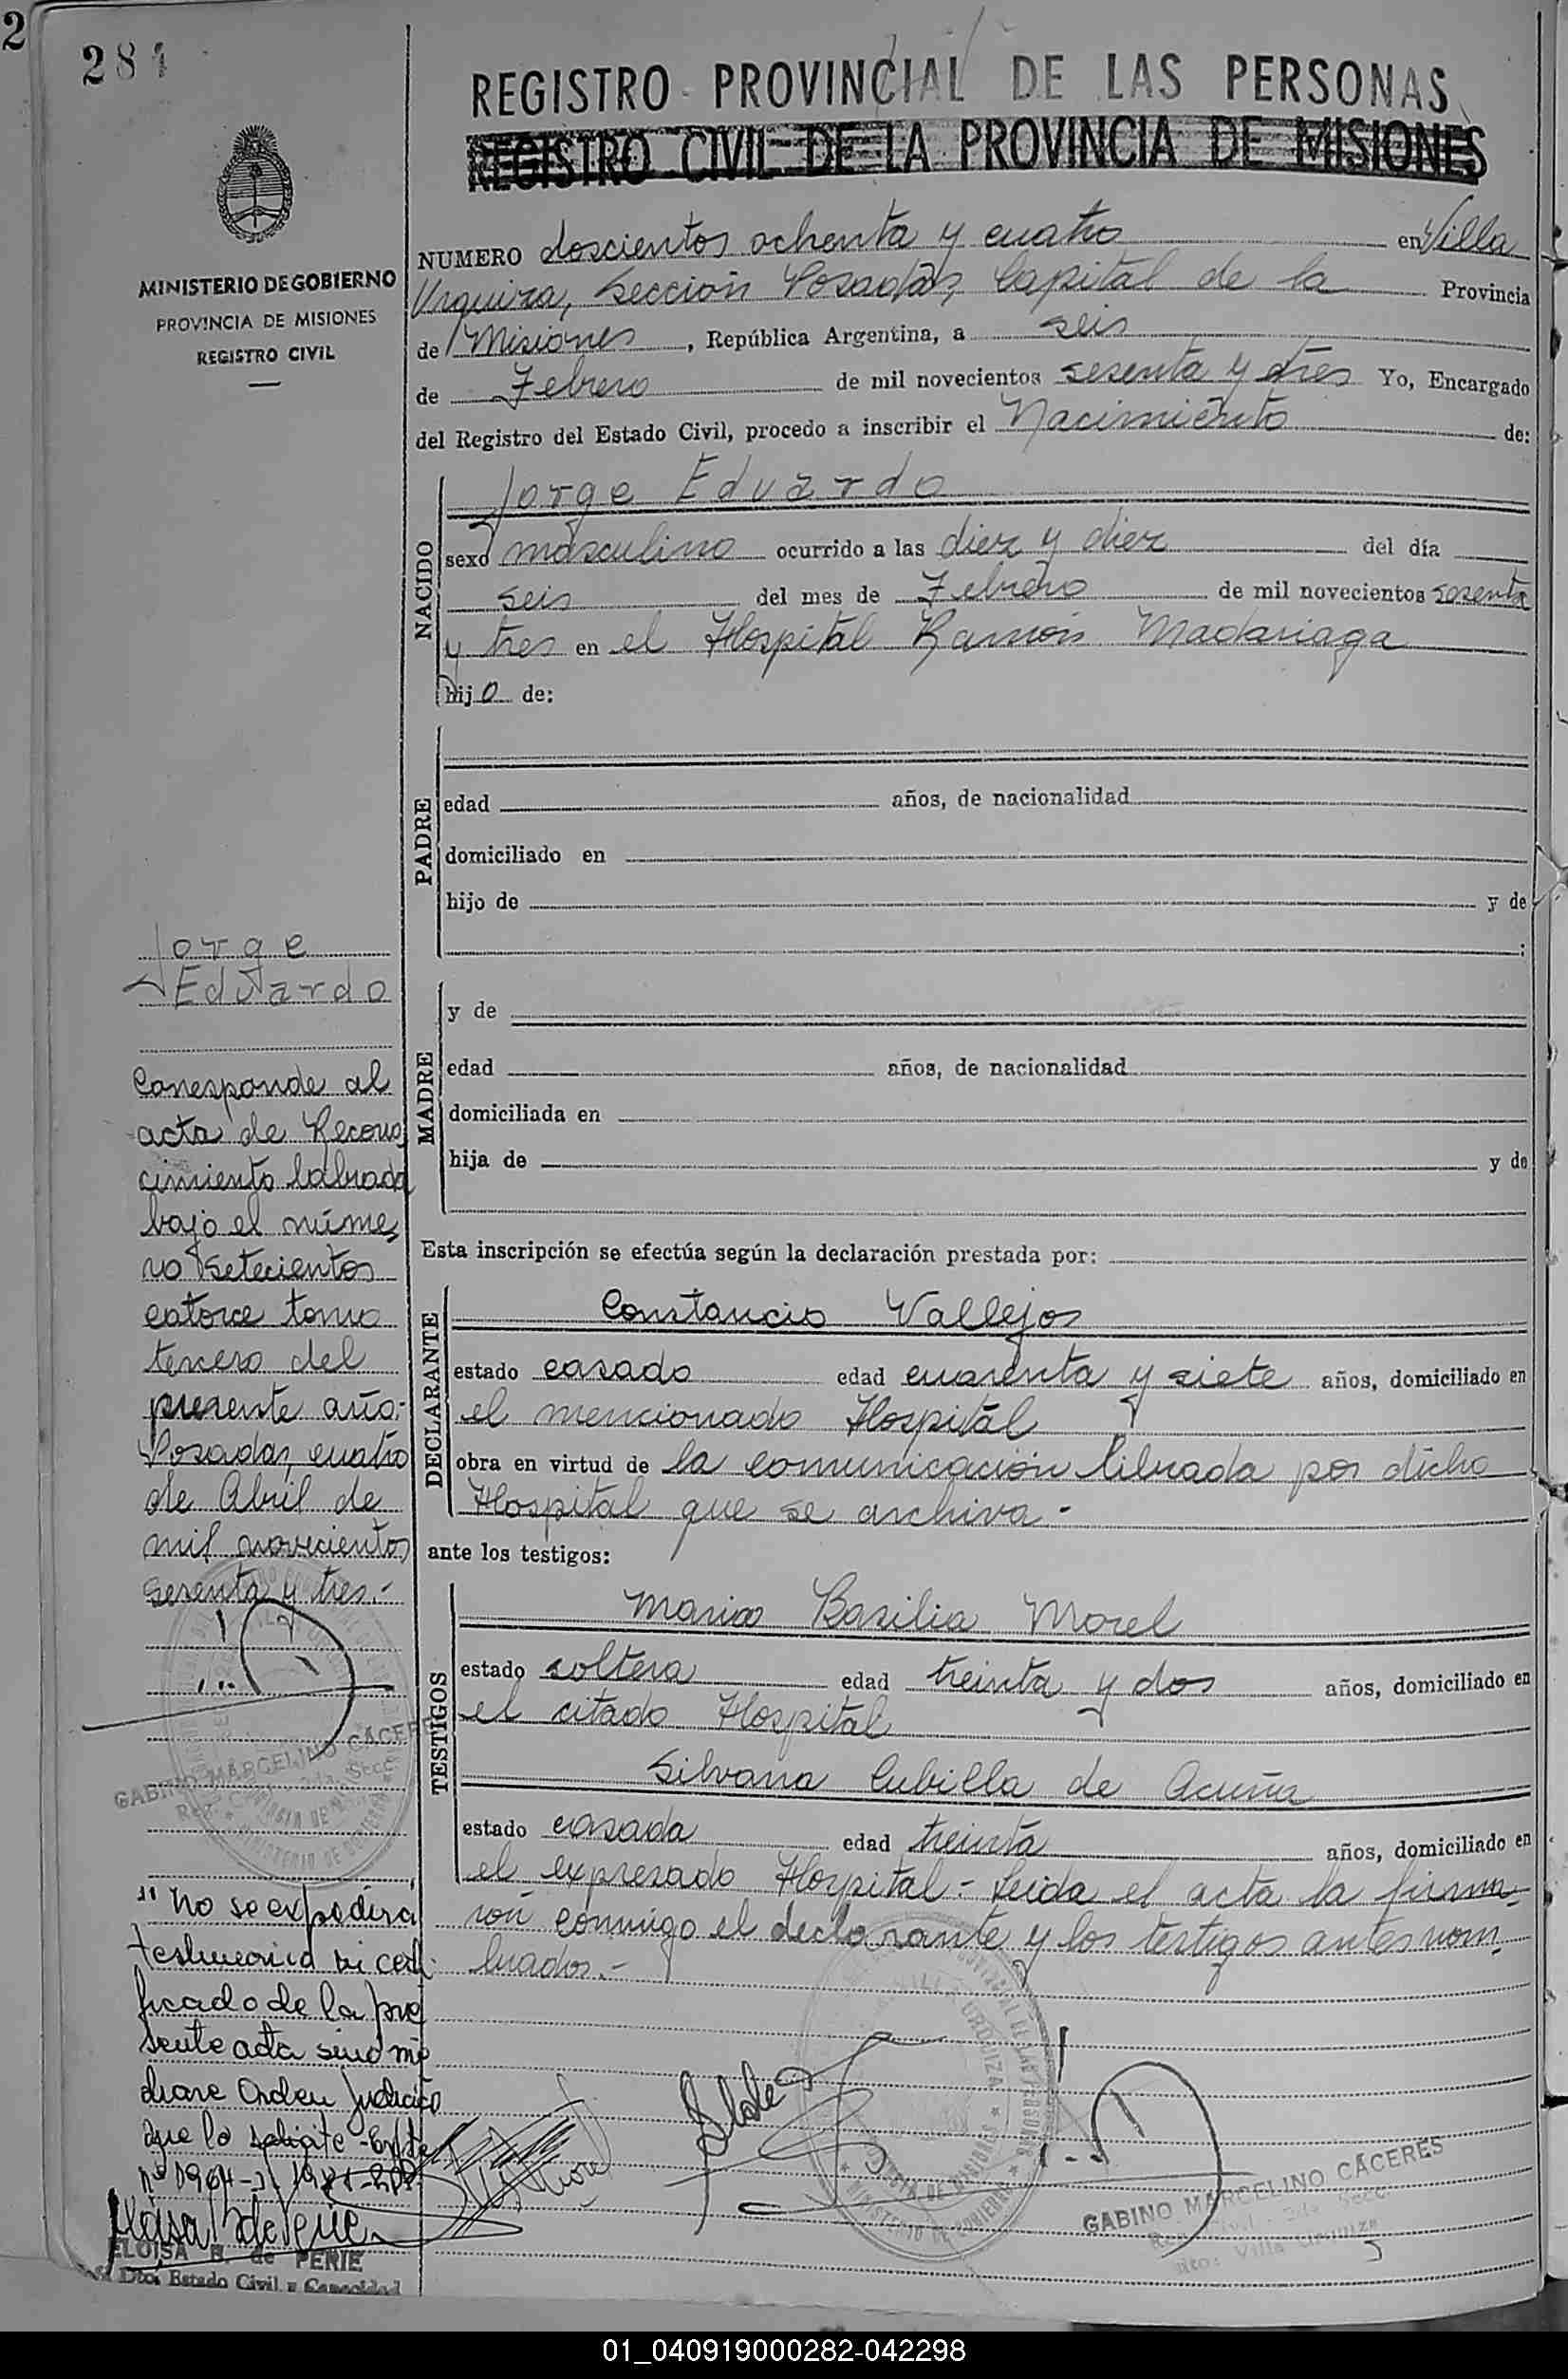 2
284
REGISTRO PROVINCIAL DE LAS PERSONAS
REGISTRO CIVIL DE LA PROVINCIA DE MISIONES
MINISTERIO DE GOBIERNO
PROVINCIA DE MISIONES
REGISTRO CIVIL
NUMERO doscientos ochenta y cuatro en Villa
Urquiza, Sección Posadas, Capital de la Provincia
de Misiones, República Argentina, a seis
de Febrero de mil novecientos sesenta y tres Yo, Encargado
del Registro del Estado Civil, procedo a inscribir el Nacimiento de:
NACIDO
Jorge Eduardo
sexo masculino ocurrido a las diez y diez del día
seis del mes de Febrero de mil novecientos sesenta
y tres en el Hospital Ramón Madariaga
hijo de:
PADRE
edad años, de nacionalidad
domiciliado en
hijo de y de
;
MADRE
y de
edad años, de nacionalidad
domiciliada en
hija de y de
Esta inscripción se efectúa según la declaración prestada por:
DECLARANTE
Constancio Vallejos
estado casado edad cuarenta y siete años, domiciliado en
el mencionado Hospital
obra en virtud de la comunicación librada por dicho
Hospital que se archiva.-
ante los testigos:
TESTIGOS
Maria Basilia Morel
estado soltera edad treinta y dos años, domiciliado en
el citado Hospital
Silvana Cubilla de Acuña
estado casada edad treinta años, domiciliado en
el expresado Hospital.- Leida el acta la firma-
ron conmigo el declarante y los testigos antes nom-
brados.-
Jorge
Eduardo
Corresponde al
acta de Recono-
cimiento labrada
bajo el núme-
ro setecientos
catorce tomo
tercero del
presente año.-
Posadas, cuatro
de Abril de
mil novecientos
sesenta y tres.-
GABINO MARCELINO CACERES
"No se expedira
testimonio ni certi-
ficado de la pre
sente acta sino me
diare Orden Judicial
que lo solicite - Expte
ELOISA B. de PERIE
Dto. Estado Civil y Capacidad
GABINO MARCELINO CACERES
Villa Urquiza
01_040919000282-042298